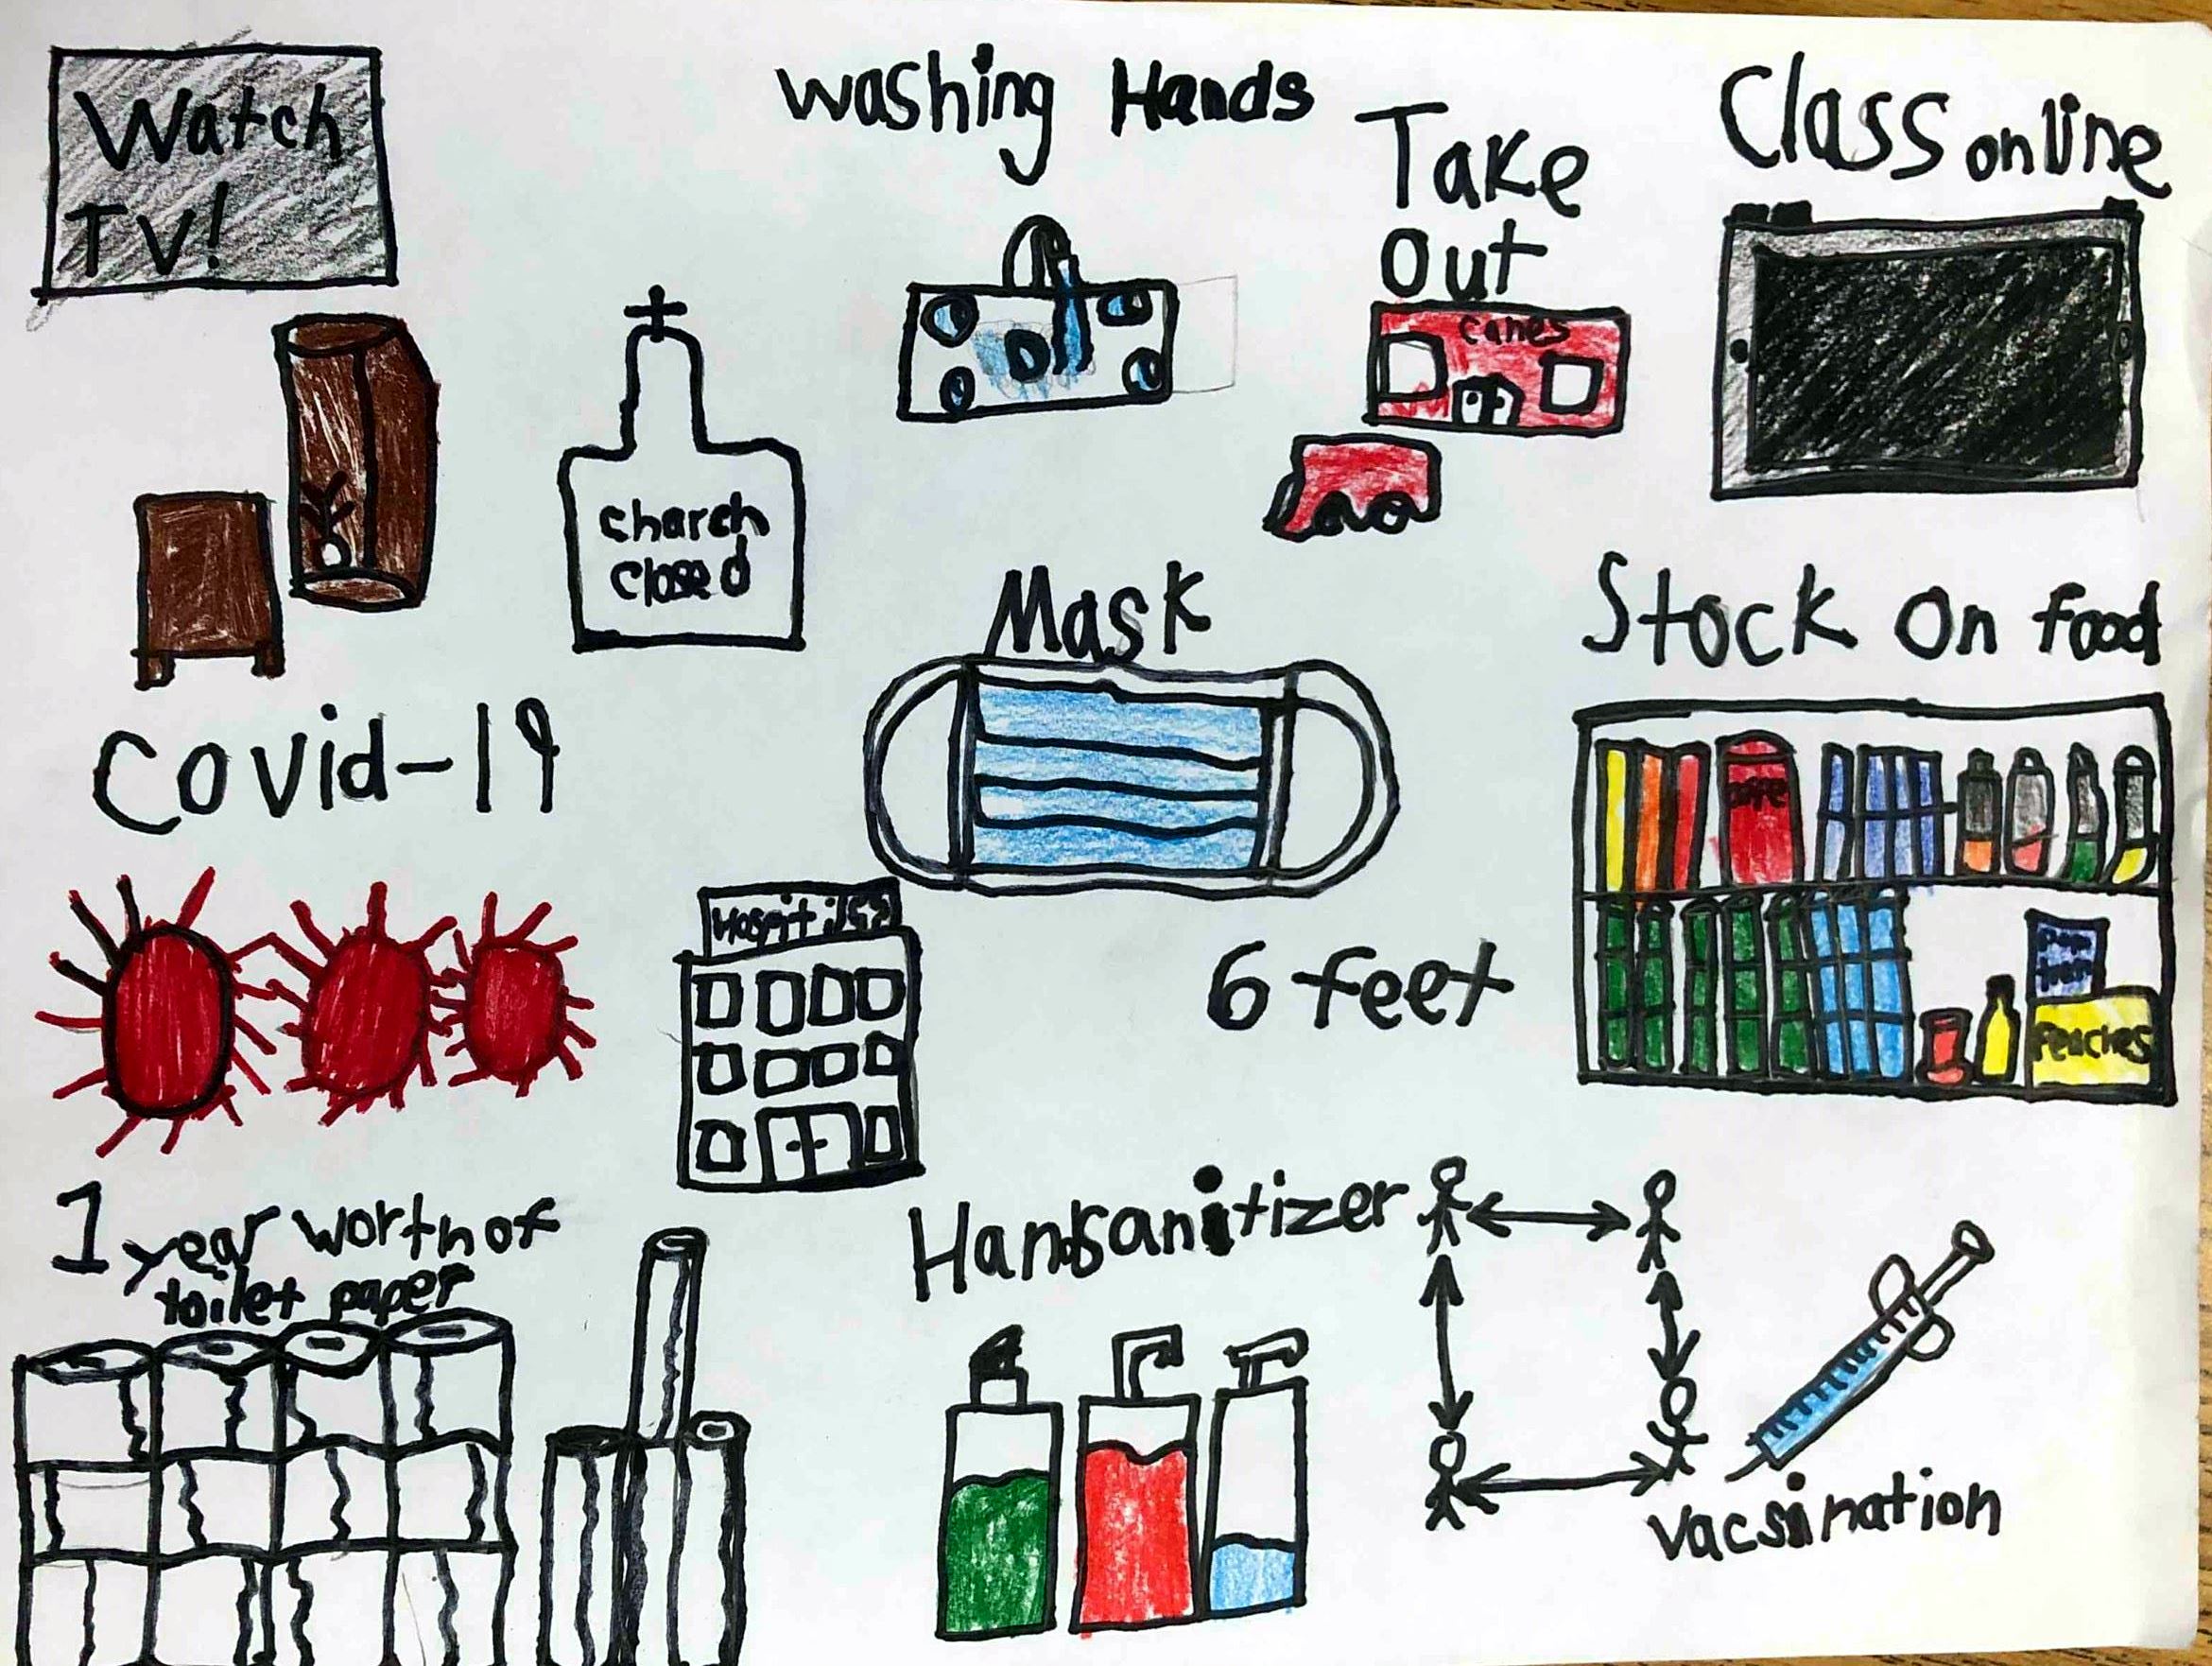 Watch
TV!
Washing Hands
Take
Out
canes
Class online
Charch
Closed
Mask
Stock On food
Covid-19
6 feet
Peaches
1 year worth of
toilet paper
Handsanitizer
vacsination